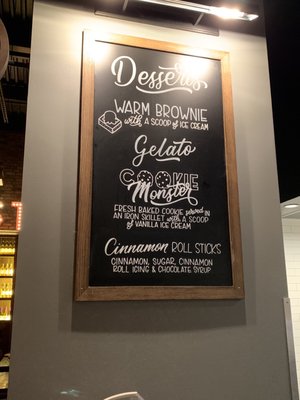 Desserts
WARM BROWNIE
with A SCOOP of ICE CREAM
Gelato
COOKIE
Monster
FRESH BAKED COOKIE served IN
AN IRON SKILLET with A SCOOP
of VANILLA ICE CREAM
Cinnamon ROLL STICKS
CINNAMON, SUGAR, CINNAMON
ROLL ICING & CHOCOLATE SYRUP